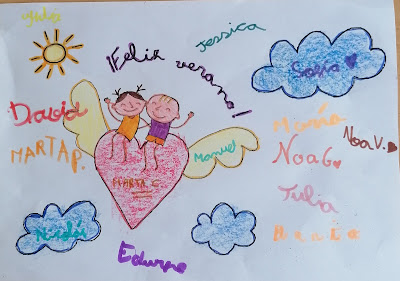 Jessica
¡Feliz verano!
Sofía
David
MARTA P.
María
Noa V.
Manuel
Noa G.
MARTA C
Julia
Nicolás
Edurne